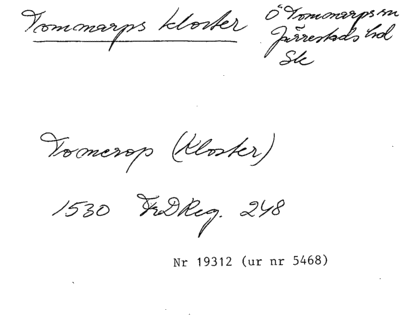 Tommarps kloster
Ö Tommarps sn
Järrestads hd
Sk
Tomerop (Kloster)
1530 FrDReg. 248
Nr 19312 (ur nr 5468)